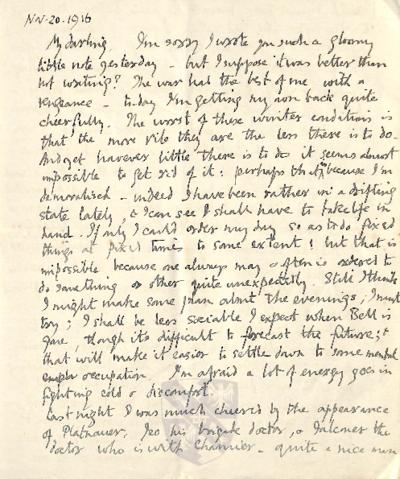 Nov. 20. 1916
My darling. I'm sorry I wrote you such a gloomy
little note yesterday - but I suppose it was better than
not writing? The war had the best of me with a
vengeance - to-day I'm getting my own back quite
cheerfully. The worst of these winter conditions is
that the more vile they are the less there is to do.
And yet however little there is to do it seems almost
impossible to get rid of it: perhaps that's because I'm
demoralised - indeed I have been rather in a drifting
state lately, & I can see I shall have to take life in
hand. If only I could order my day so as to do fixed
things at fixed times, to some extent! but that is
impossible because one always may & often is ordered to
do something or other quite unexpectedly. Still I think
I might make some plan about the evenings; I must
try; I shall be less sociable I expect when Bell is
gone, though it's difficult to forecast the future; &
that will make it easier to settle down to some mental
occupation. I'm afraid a lot of energy goes in
fighting cold & discomfort.
Last night I was much cheered by the appearance
of Platnauer, his brigade doctor, & Falconer the
doctor who is with - quite a nice man